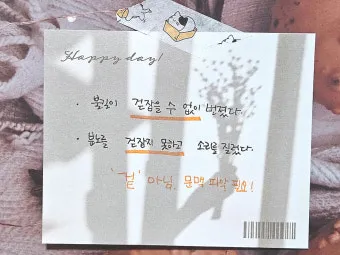 Happy day!
· 불길이 걷잡을 수 없이 번졌다.
· 분노를 걷잡지 못하고 소리를 질렀다.
'겉' 아님. 문맥 파악 필요!